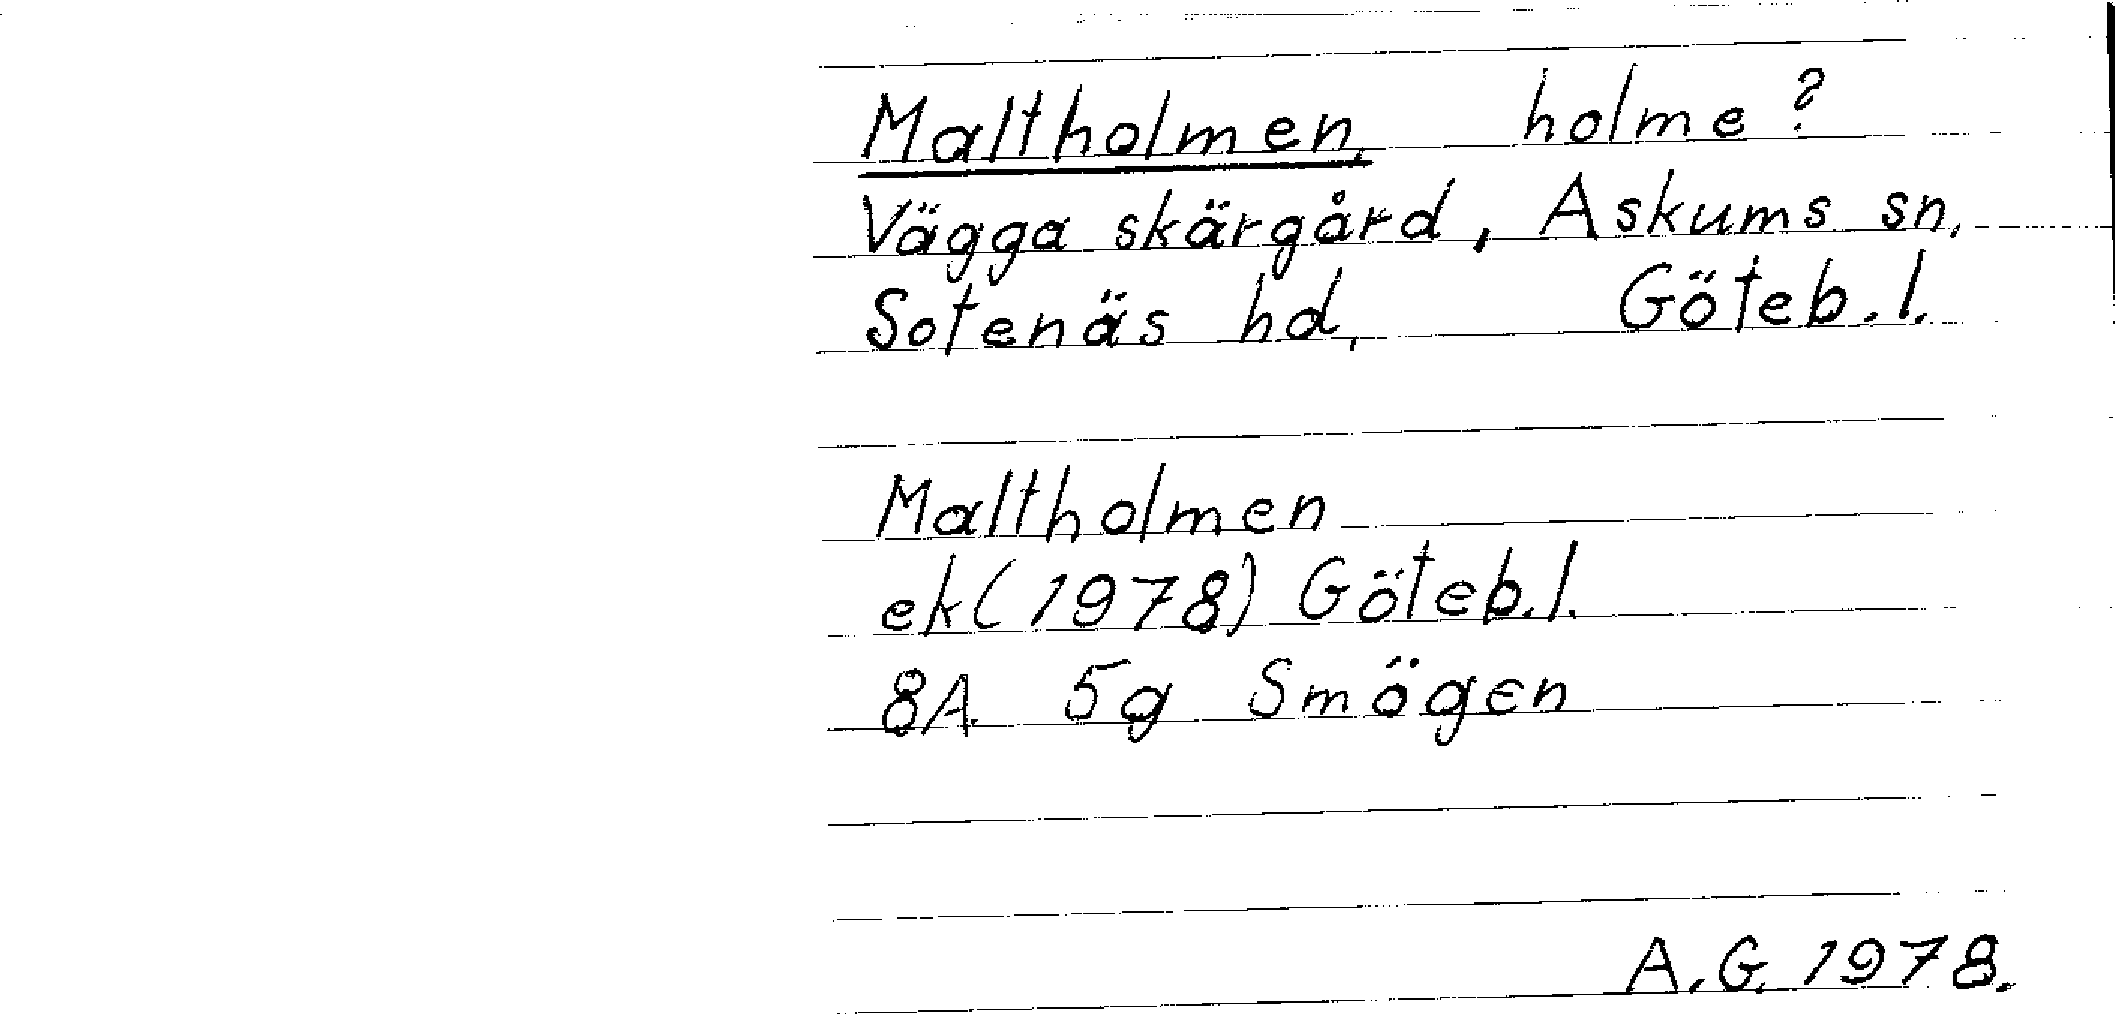 Maltholmen, holme?
Vägga skärgård, Askums sn,
Sotenäs hd, Göteb.l.
Maltholmen
ek(1978) Göteb.l.
8A 5g Smögen
A.G. 1978.